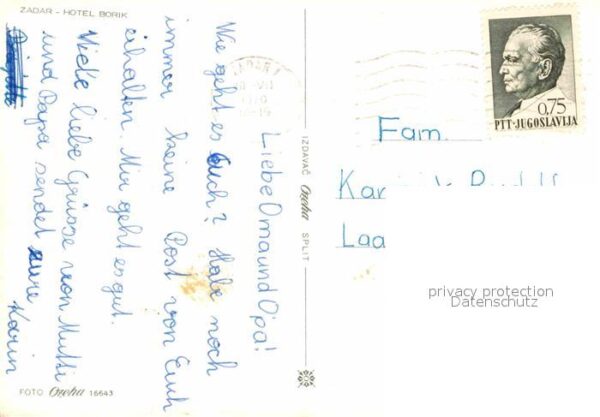 ZADAR - HOTEL BORIK
Liebe Oma und Opa!
Wie geht es Euch? Habe noch
immer keine Post von Euch
erhalten. Mir geht es gut.
Viele liebe Grüsse von Mutti
und Papa sendet eure
Karin
FOTO Oreha 16643
IZDAVAČ Oreha SPLIT
ZADAR
0,75
PTT-JUGOSLAVIJA
Fam.
Laa
privacy protection
Datenschutz